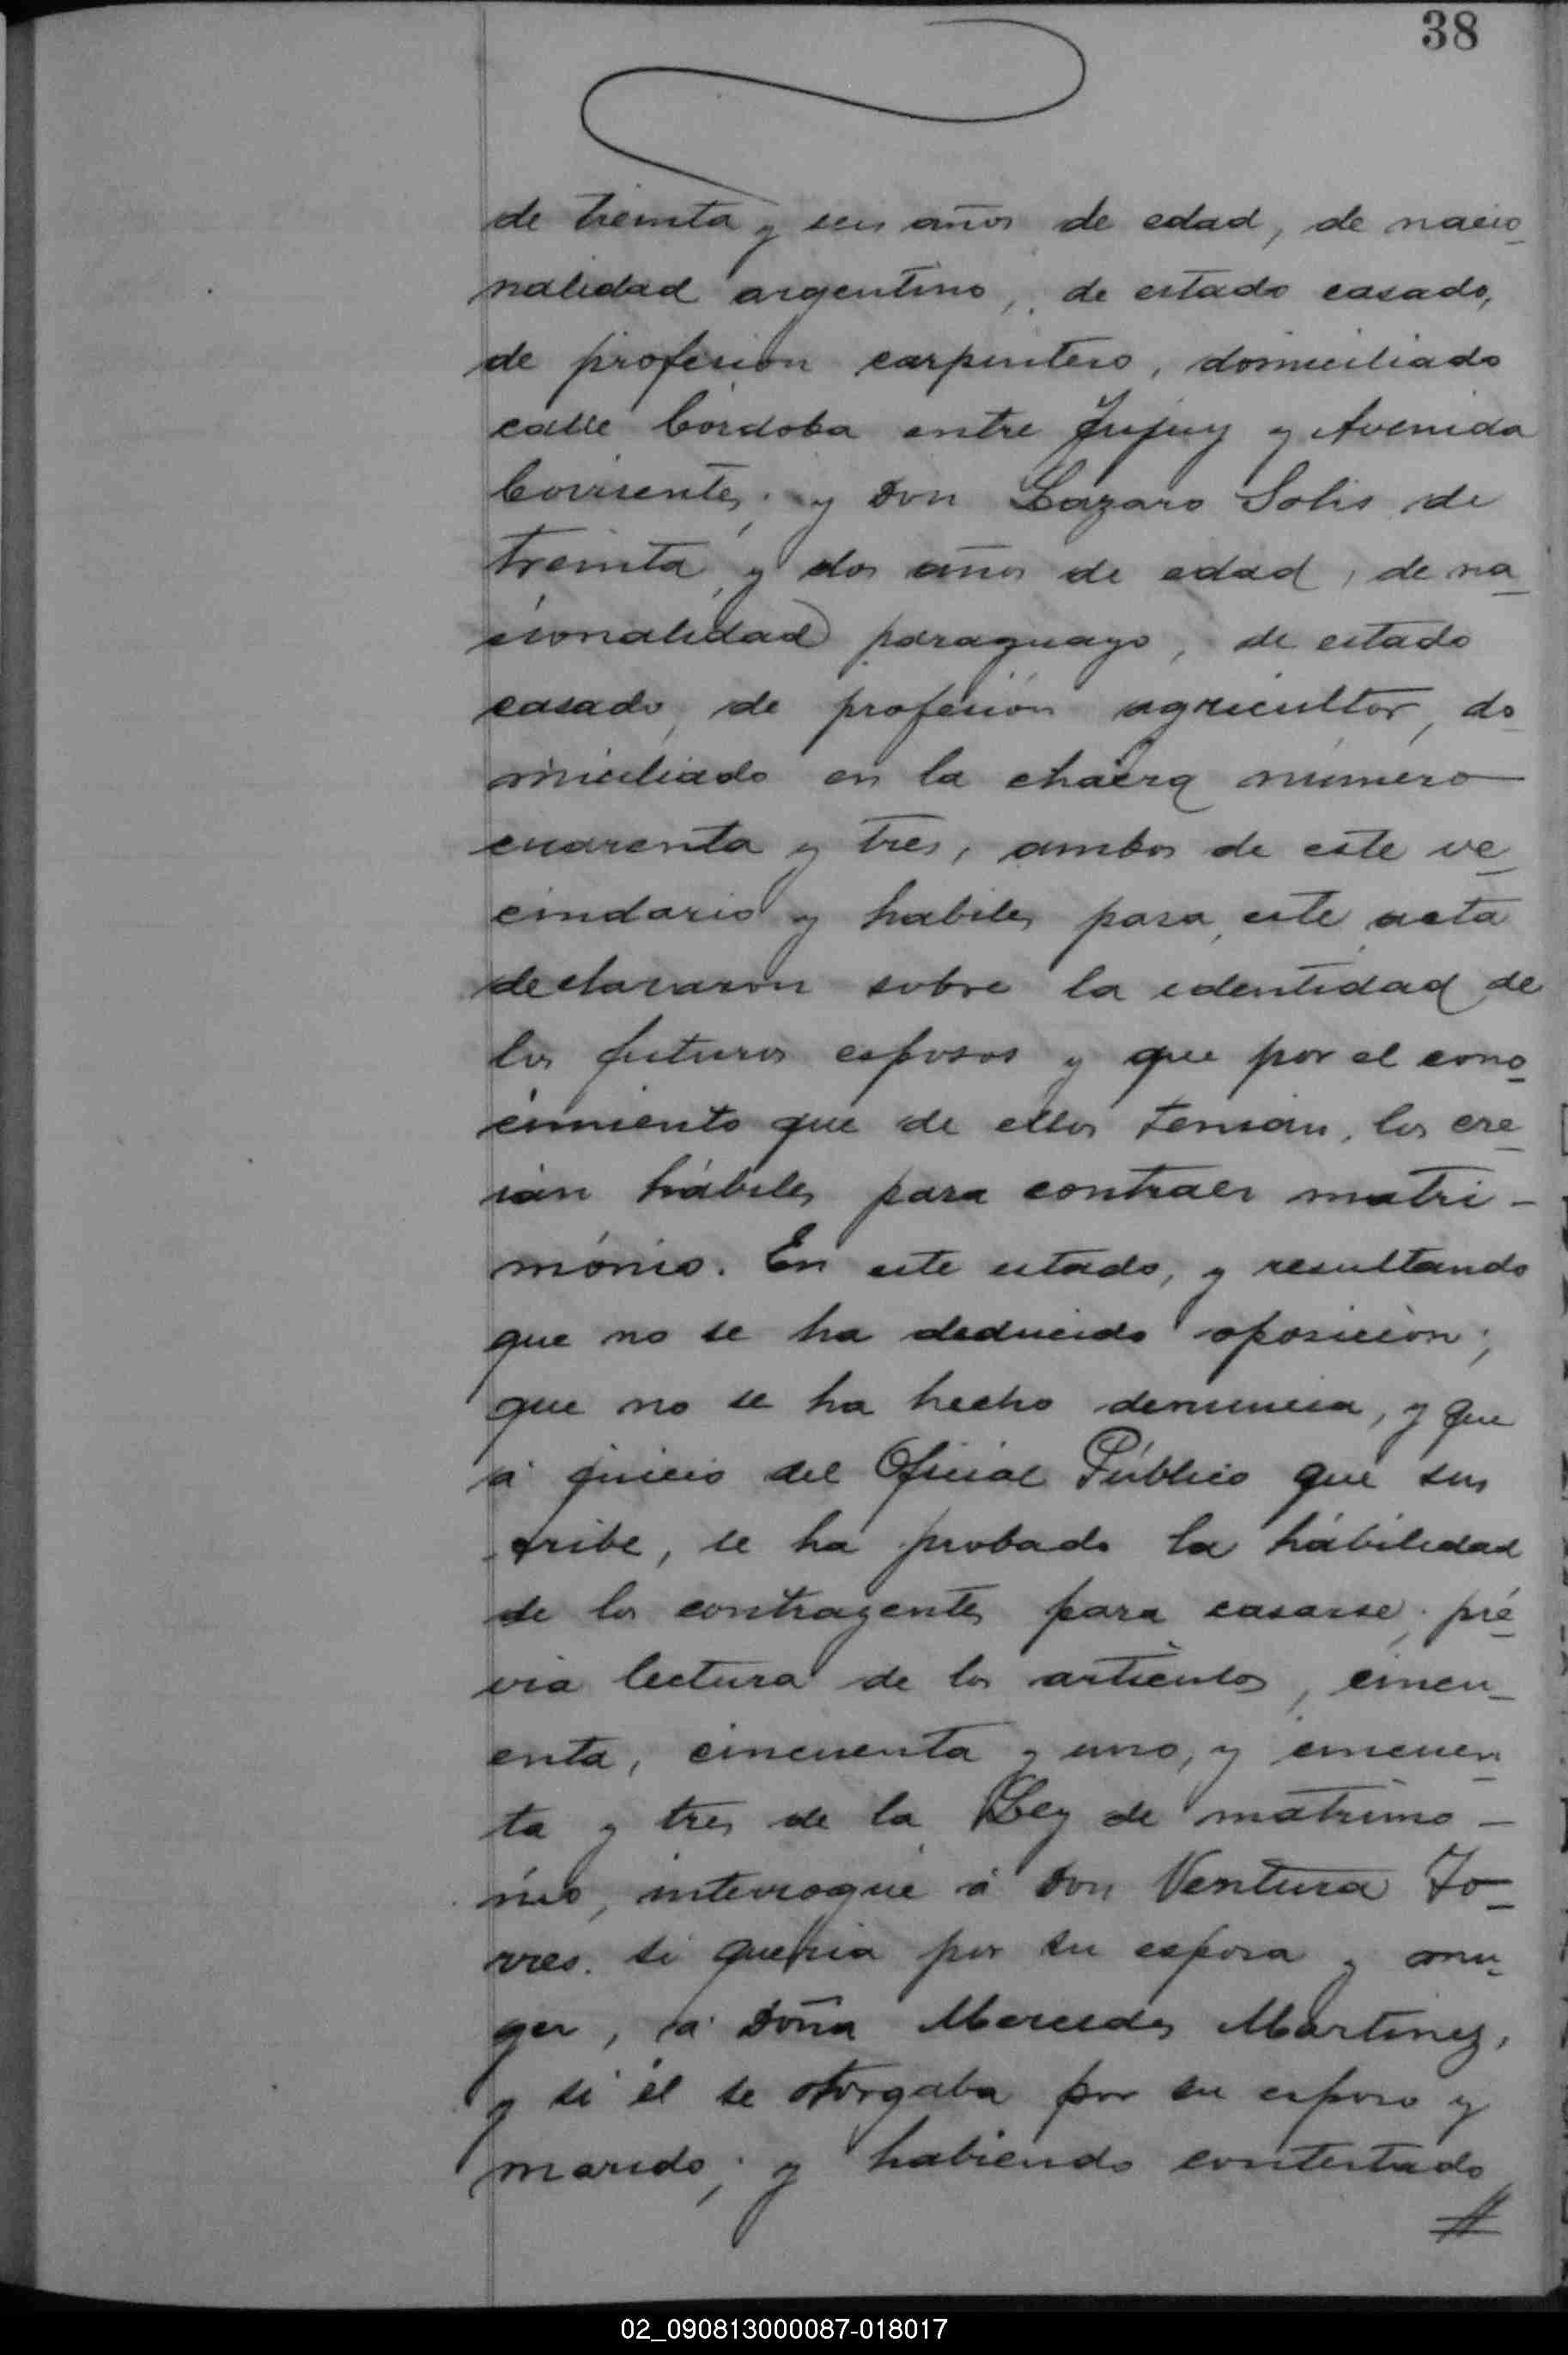 38
de treinta y seis años de edad, de nacio
nalidad argentino, de estado casado,
de profesion carpintero, domiciliado
calle Córdoba entre Jujuy y Avenida
Corrientes; y Don Lazaro Solis de
treinta y dos años de edad, de na
cionalidad paraguayo, de estado
casado, de profesión agricultor, do
miciliado en la chacra número
cuarenta y tres, ambos de este ve
cindario y habiles para este acta
declararon sobre la identidad de
los futuros esposos y que por el cono
cimiento que de ellos tenian, los cre
ian hábiles para contraer matri-
mónio. En este estado, y resultando
que no se ha deducido oposición;
que no se ha hecho denuncia, y que
á juicio del Oficial Público que sus
cribe, se ha probado la hábilidad
de los contrayentes para casarse; pré
via lectura de los articulos, cincu-
enta, cincuenta y uno, y cincuen
ta y tres de la Ley de matrimo-
nio, interrogué á Don Ventura To-
rres. si queria por su esposa y mu-
ger, á Doña Mercedes Martinez,
y si él se otorgaba por su esposo y
marido; y habiendo contestado
#
02_090813000087-018017